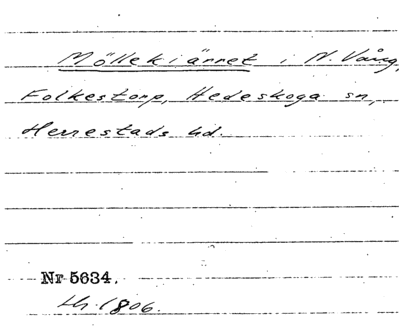 Möllekiärret i N. Vång,
Folkestorp, Hedeskoga sn,
Herrestads hd.
Nr 5634.
Lh. 1806.